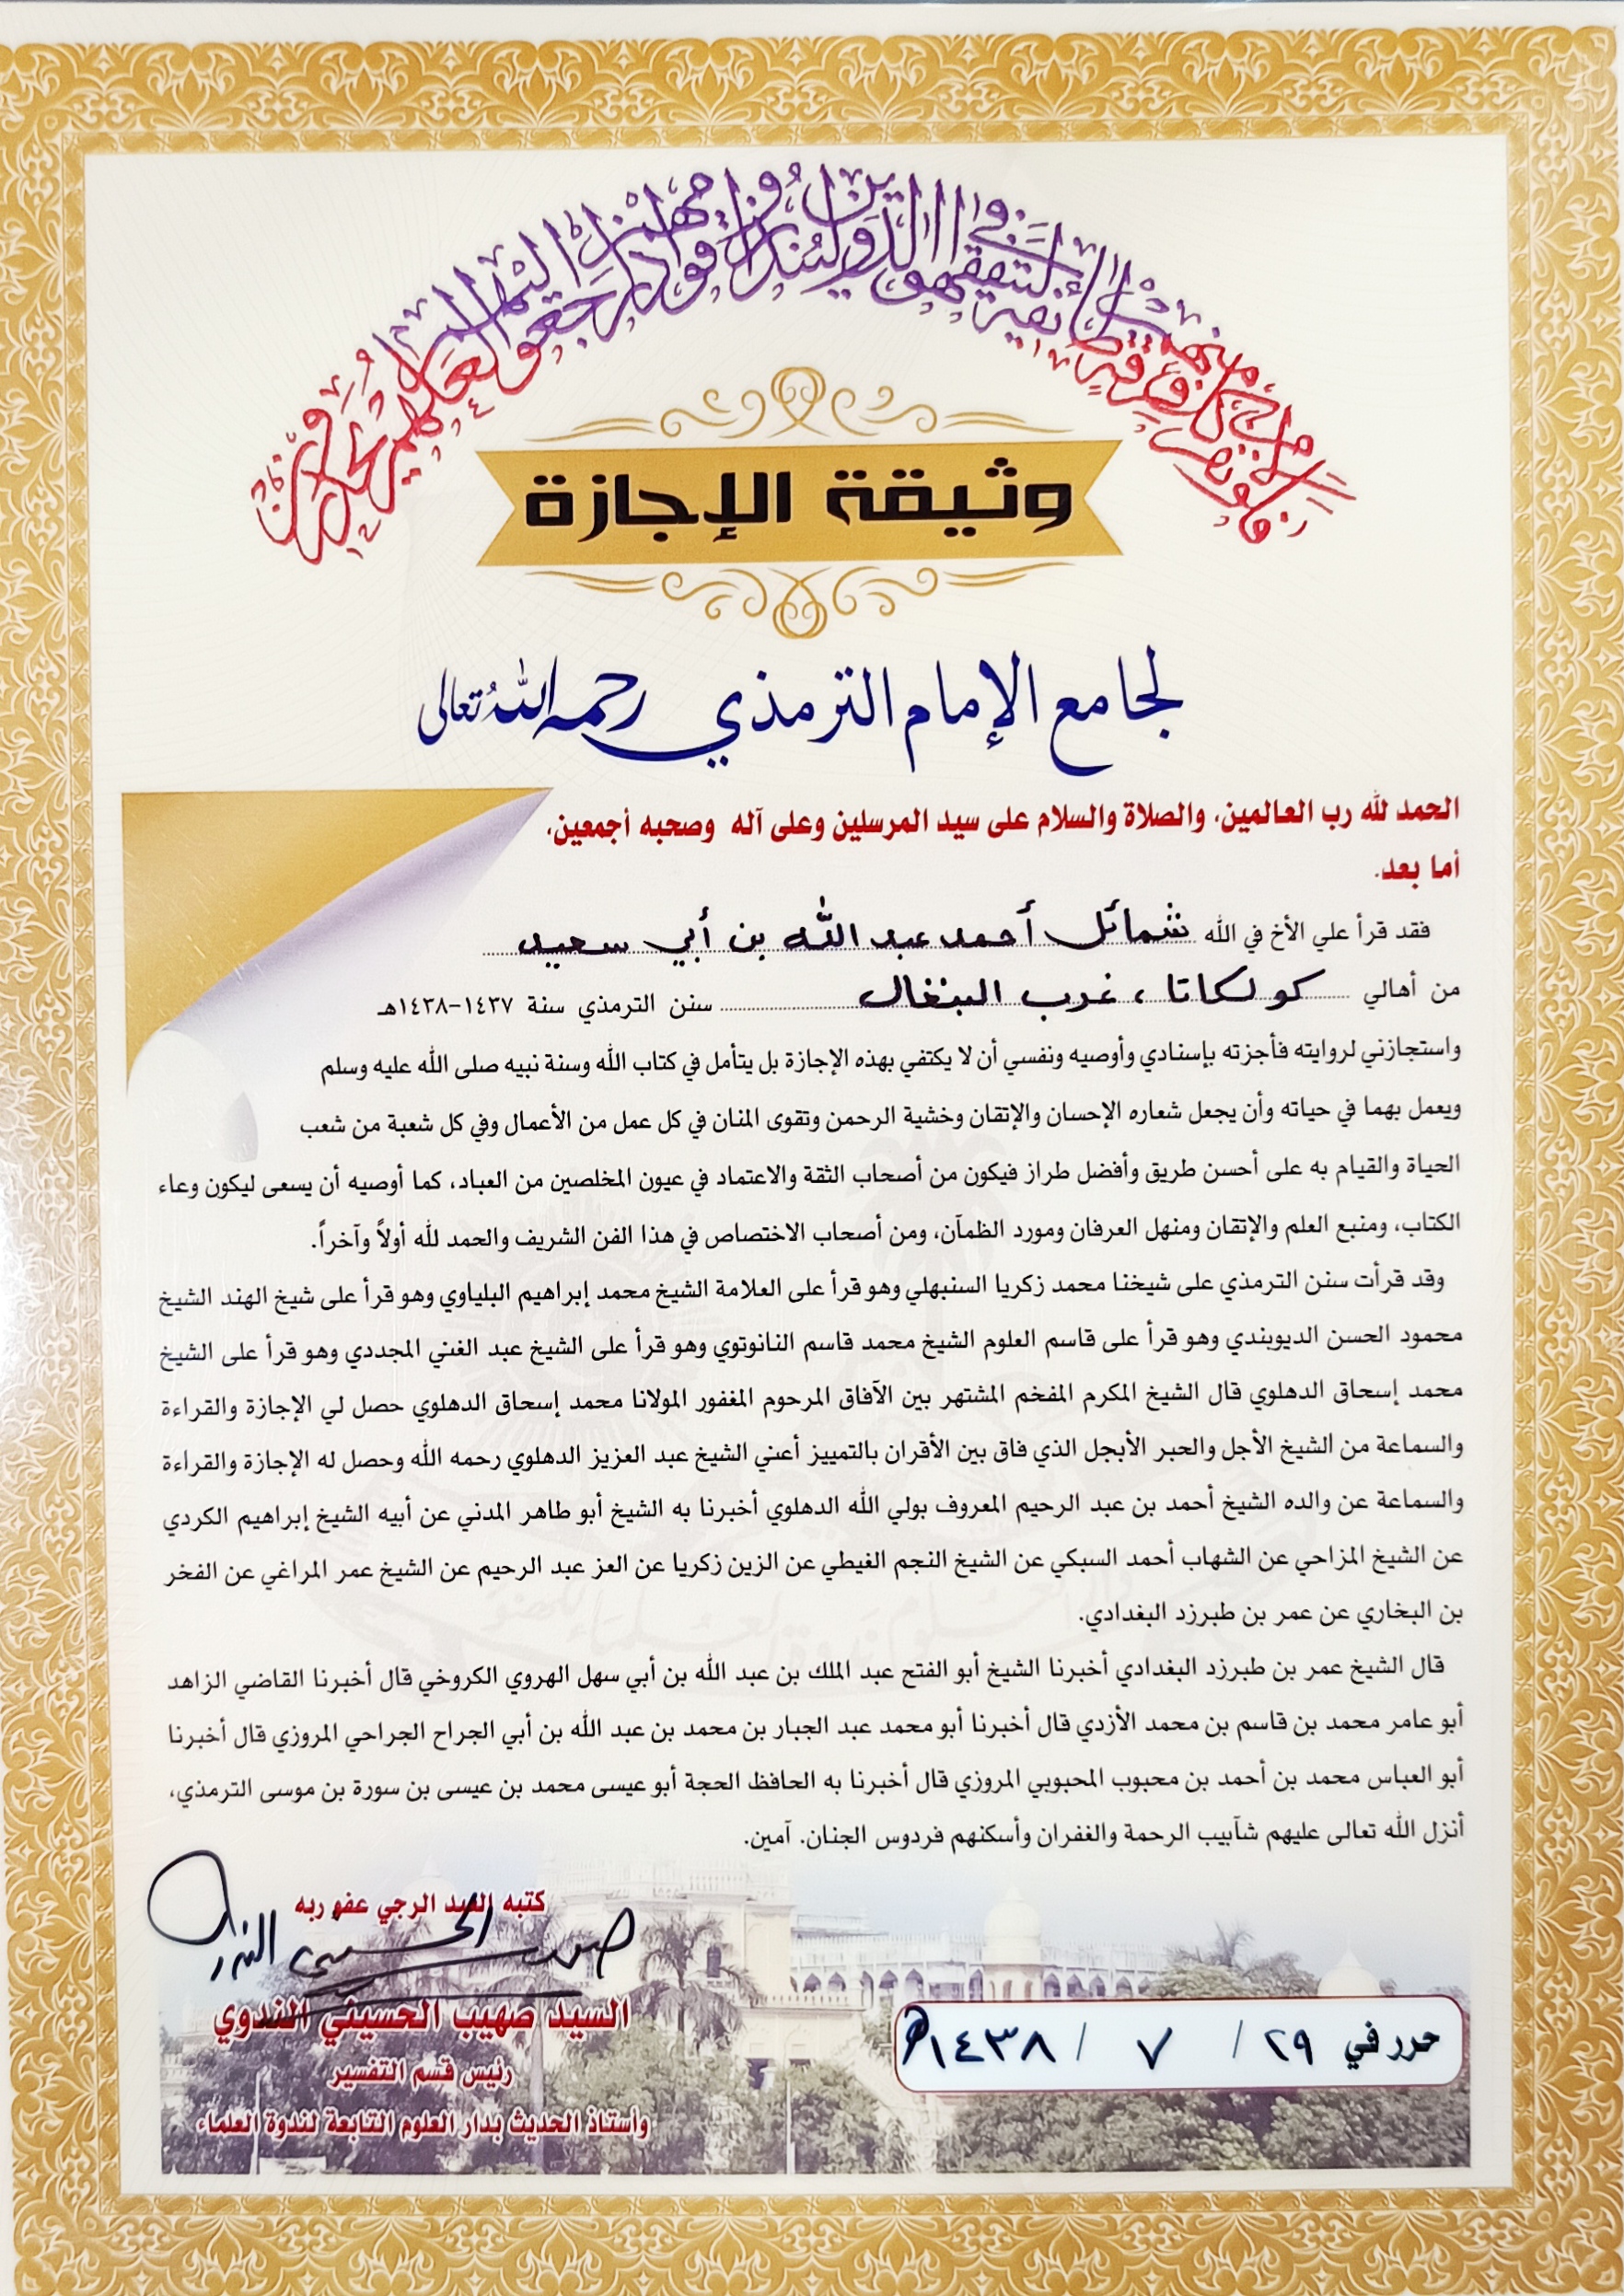 فلولا نفر من كل فرقة منهم طائفة ليتفقهوا في الدين ولينذروا قومهم إذا رجعوا إليهم لعلهم يحذرون
وثيقة الإجازة
لجامع الإمام الترمذي رحمه الله تعالى
الحمد لله رب العالمين، والصلاة والسلام على سيد المرسلين وعلى آله وصحبه أجمعين،
أما بعد.
فقد قرأ علي الأخ في الله شمائل أحمد عبد الله بن أبي سعيد
من أهالي كولكاتا، غرب البنغال سنن الترمذي سنة ١٤٣٧-١٤٣٨هـ
واستجازني لروايته فأجزته بإسنادي وأوصيه ونفسي أن لا يكتفي بهذه الإجازة بل يتأمل في كتاب الله وسنة نبيه صلى الله عليه وسلم
ويعمل بهما في حياته وأن يجعل شعاره الإحسان والإتقان وخشية الرحمن وتقوى المنان في كل عمل من الأعمال وفي كل شعبة من شعب
الحياة والقيام به على أحسن طريق وأفضل طراز فيكون من أصحاب الثقة والاعتماد في عيون المخلصين من العباد، كما أوصيه أن يسعى ليكون وعاء
الكتاب، ومنبع العلم والإتقان ومنهل العرفان ومورد الظمآن، ومن أصحاب الاختصاص في هذا الفن الشريف والحمد لله أولاً وآخراً.
وقد قرأت سنن الترمذي على شيخنا محمد زكريا السنبهلي وهو قرأ على العلامة الشيخ محمد إبراهيم البلياوي وهو قرأ على شيخ الهند الشيخ
محمود الحسن الديوبندي وهو قرأ على قاسم العلوم الشيخ محمد قاسم النانوتوي وهو قرأ على الشيخ عبد الغني المجددي وهو قرأ على الشيخ
محمد إسحاق الدهلوي قال الشيخ المكرم المفخم المشتهر بين الآفاق المرحوم المغفور المولانا محمد إسحاق الدهلوي حصل لي الإجازة والقراءة
والسماعة من الشيخ الأجل والحبر الأبجل الذي فاق بين الأقران بالتمييز أعني الشيخ عبد العزيز الدهلوي رحمه الله وحصل له الإجازة والقراءة
والسماعة عن والده الشيخ أحمد بن عبد الرحيم المعروف بولي الله الدهلوي أخبرنا به الشيخ أبو طاهر المدني عن أبيه الشيخ إبراهيم الكردي
عن الشيخ المزاحي عن الشهاب أحمد السبكي عن الشيخ النجم الغيطي عن الزين زكريا عن العز عبد الرحيم عن الشيخ عمر المراغي عن الفخر
بن البخاري عن عمر بن طبرزد البغدادي.
قال الشيخ عمر بن طبرزد البغدادي أخبرنا الشيخ أبو الفتح عبد الملك بن عبد الله بن أبي سهل الهروي الكروخي قال أخبرنا القاضي الزاهد
أبو عامر محمد بن قاسم بن محمد الأزدي قال أخبرنا أبو محمد عبد الجبار بن محمد بن عبد الله بن أبي الجراح الجراحي المروزي قال أخبرنا
أبو العباس محمد بن أحمد بن محبوب المحبوبي المروزي قال أخبرنا به الحافظ الحجة أبو عيسى محمد بن عيسى بن سورة بن موسى الترمذي،
أنزل الله تعالى عليهم شآبيب الرحمة والغفران وأسكنهم فردوس الجنان. آمين.
كتبه العبد الرجي عفو ربه
صهيب الحسيني الندوي
السيد صهيب الحسيني الندوي
رئيس قسم التفسير
وأستاذ الحديث بدار العلوم التابعة لندوة العلماء
حرر في ٢٩ / ٧ / ١٤٣٨هـ